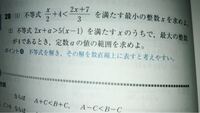 28 (1) 不等式 x/2+4<(2x+7)/3 を満たす最小の整数xを求めよ。
(2) 不等式 2x+a>5(x-1) を満たすxのうちで,最大の整数
が4であるとき,定数aの値の範囲を求めよ。
ポイント 不等式を解き,その解を数直線上に表すと考えやすい。
ならば A+C<B+C, A-C<B-C